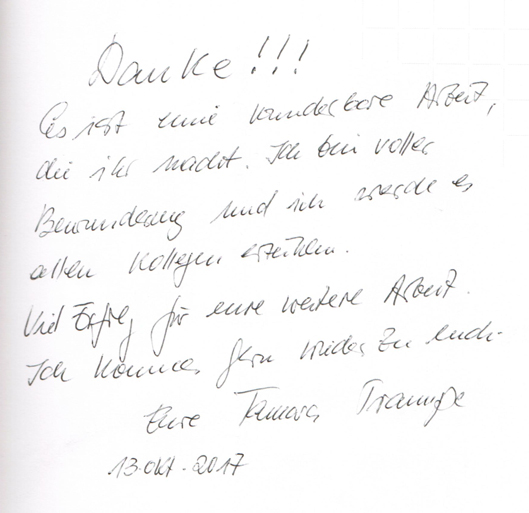 Danke!!!
Es ist eine wunderbare Arbeit,
die ihr macht. Ich bin voller
Bewunderung und ich werde es
allen Kollegen erzählen.
Viel Erfolg für eure weitere Arbeit.
Ich komme gern wieder zu euch.
Eure Tamara
13.Okt.2017